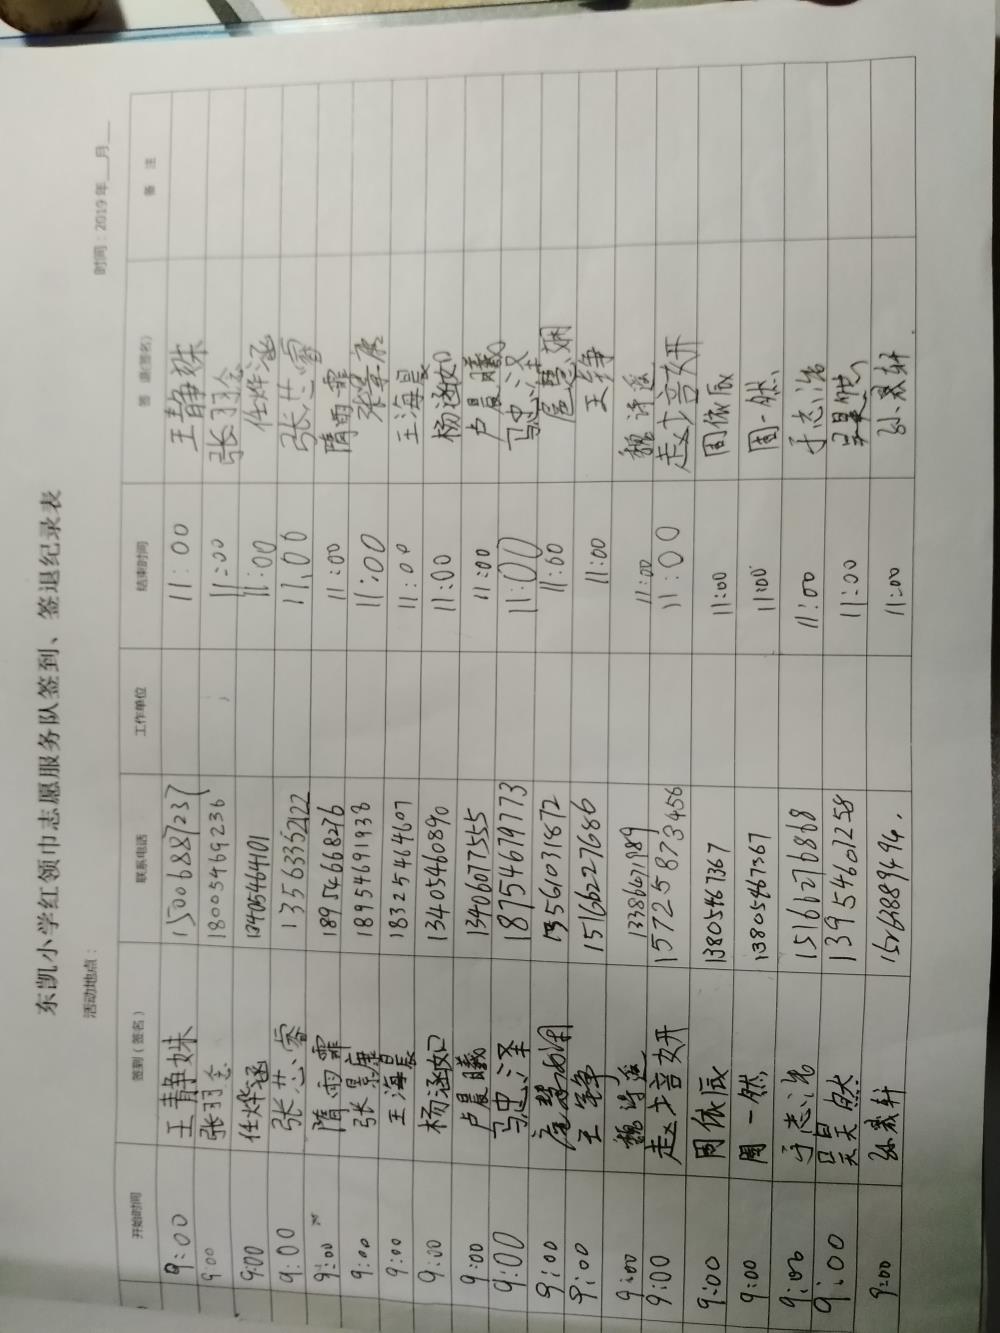 东凯小学红领巾志愿服务队签到、签退纪录表
活动地点： 时间：2019年__月__
开始时间 签到（签名） 联系电话 工作单位 结束时间 签退(签名) 备注
9:00 王静姝 15006887237 11:00 王静姝
9:00 张羽念 18005469236 11:00 张羽念
9:00 任烨涵 13405464101 11:00 任烨涵
9:00 张芯睿 13563352122 11:00 张芯睿
9:00 隋雨霏 18954668276 11:00 隋雨霏
9:00 张景康 18954691938 11:00 张景康
9:00 王海晨 18325464607 11:00 王海晨
9:00 杨涵如 13405460890 11:00 杨涵如
9:00 卢晨曦 13406077555 11:00 卢晨曦
9:00 马忠泽 18754679773 11:00 马忠泽
9:00 13561031872 11:00
9:00 王铮 15166227686 11:00 王铮
9:00 魏诗遥 13386671989 11:00 魏诗遥
9:00 赵培妍 15725873456 11:00 赵培妍
9:00 周依辰 13805467367 11:00 周依辰
9:00 周一然 13805467367 11:00 周一然
9:00 于志浩 15166276868 11:00 于志浩
9:00 吴昊然 13954601258 11:00 吴昊然
9:00 孙嘉轩 11:00 孙嘉轩